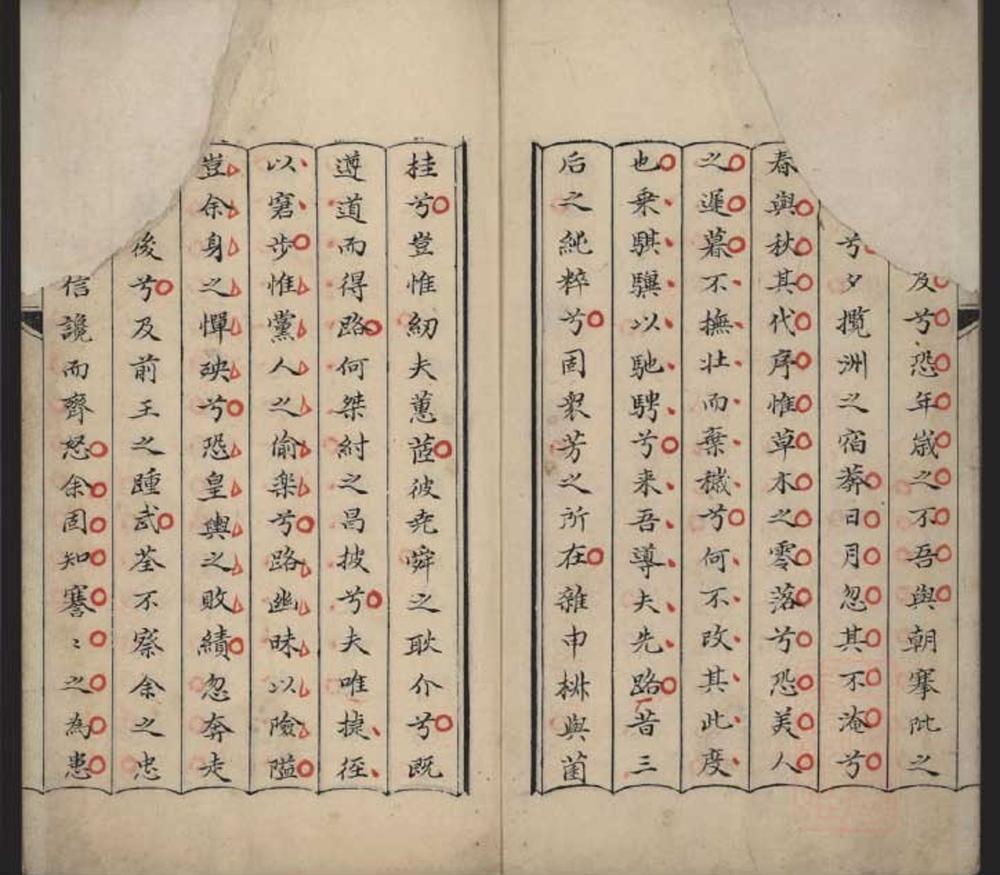 及兮恐年歳之不吾與朝搴阰之
兮夕攬洲之宿莽日月忽其不淹兮
春與秋其代序惟草木之零落兮恐美人
之遲暮不撫壯而棄穢兮何不改其此度
也乗騏驥以馳騁兮来吾導夫先路昔三
后之純粹兮固衆芳之所在雜申椒與菌
桂兮豈惟紉夫蕙茝彼堯舜之耿介兮既
遵道而得路何桀紂之昌披兮夫唯捷徑
以窘步惟黨人之偷楽兮路幽昧以險隘
豈余身之憚殃兮恐皇輿之敗績忽奔走
後兮及前王之踵武荃不察余之忠
信讒而齊怒余固知謇〻之為患